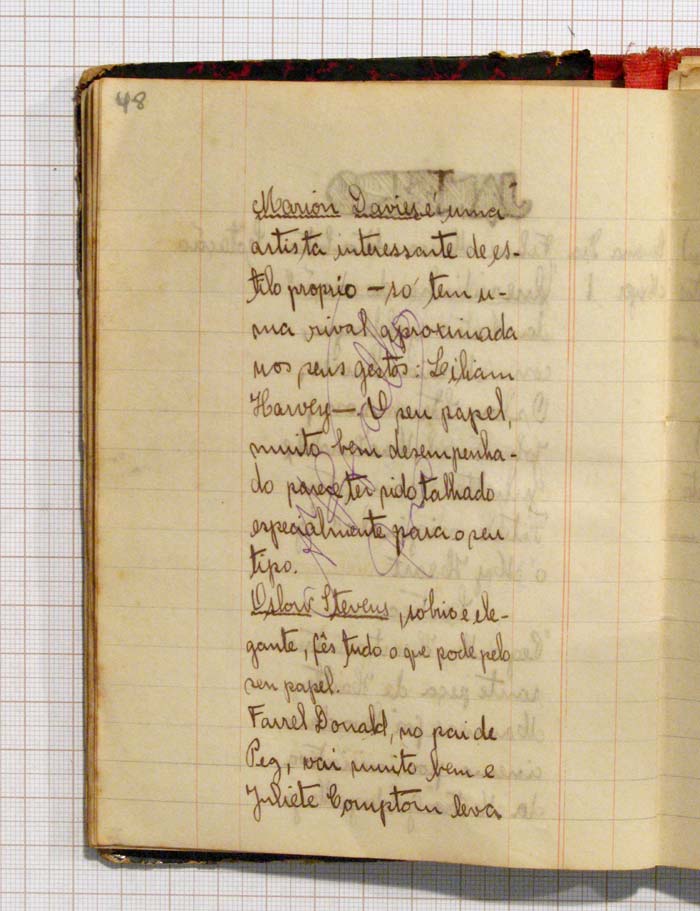 48
Marion Davies é uma
artista interessante de es-
tilo proprio — só tem u-
ma rival aproximada
nos seus gestos: Liliam
Harvey — O seu papel,
muito bem desempenha-
do parece ter sido talhado
especialmente para o seu
tipo.
Oslow Stevens, sóbrio e ele-
gante, fês tudo o que pode pelo
seu papel.
Farrel Donald, no pai de
Peg, vai muito bem e
Juliete Comptom leva